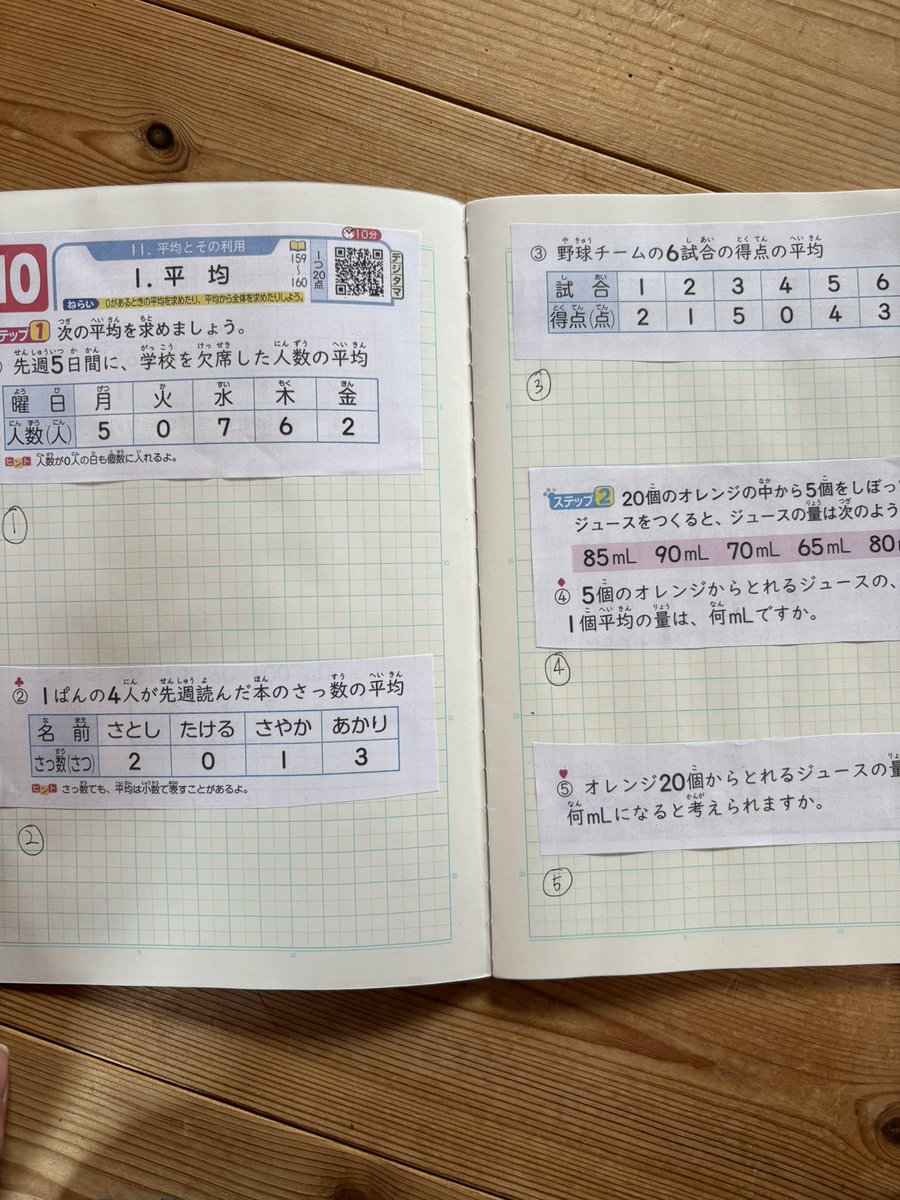 10
11. 平均とその利用
1. 平 均
ねらい 0があるときの平均を求めたり、平均から全体を求めたりしよう。
159
〜
160
10分
1つ20点
デジタマ
テップ1 次の平均を求めましょう。
先週5日間に、学校を欠席した人数の平均
曜 日 月 火 水 木 金
人数(人) 5 0 7 6 2
ヒント 人数が0人の日も個数に入れるよ。
①
② 1ぱんの4人が先週読んだ本のさっ数の平均
名 前 さとし たける さやか あかり
さっ数(さつ) 2 0 1 3
ヒント さっ数でも、平均は小数で表すことがあるよ。
②
③ 野球チームの6試合の得点の平均
試 合 1 2 3 4 5 6
得点(点) 2 1 5 0 4 3
③
ステップ2 20個のオレンジの中から5個をしぼっ
ジュースをつくると、ジュースの量は次のよう
85mL 90mL 70mL 65mL 80m
④ 5個のオレンジからとれるジュースの、
1個平均の量は、何mLですか。
④
⑤ オレンジ20個からとれるジュースの量
何mLになると考えられますか。
⑤